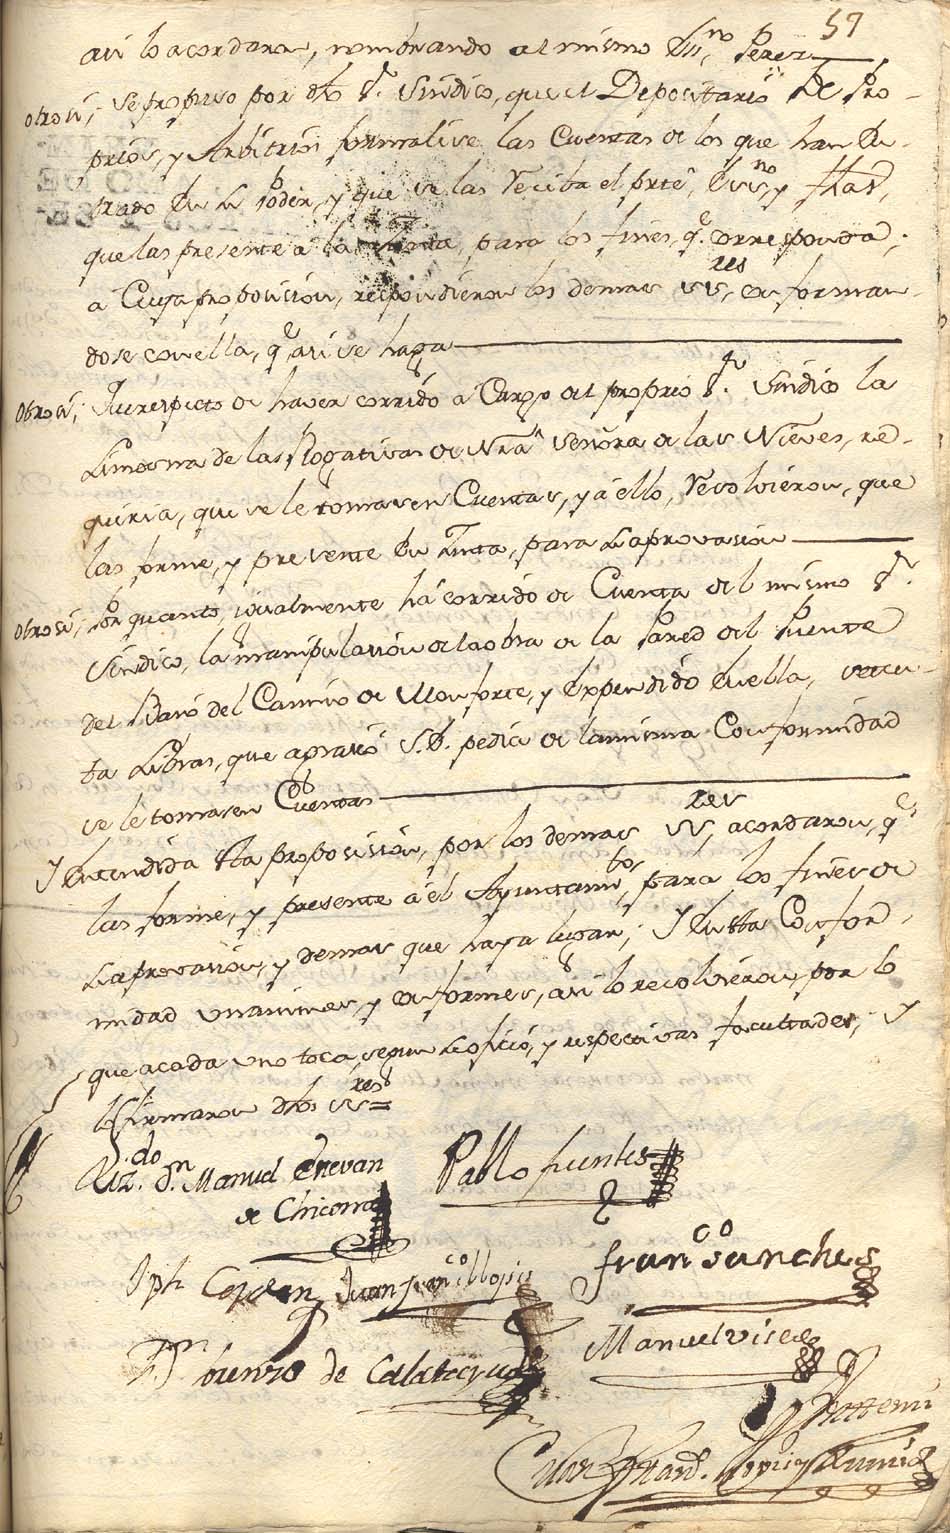 59
asi lo acordaron, nombrando al mismo Ess.no Perez
otro si; se propuso por dho S.r Sindico, que el Depositario de Pro-
prios, y Arbitrios formalise las Cuentas de los que han En-
trado En su Poder, y que se las reciba el prte Ess.no y
que las presente a la Junta, para los fines, q.e corresponda;
a Cuya proposicion, respondieron los demas SS.res, conforman-
dose con ella, q.e asi se haga
Otro si; Que respecto de haver corrido a Cargo del proprio S.r Sindico la
Limosna de las Rogativas de Nrã Señora de las Nieves, re-
quiria, que se le tomasen Cuentas, y a ello, resolvieron, que
las forme, y presente En Junta, para su aprovasion
Otro si; Por quanto, igualmente há corrido de Cuenta del mismo S.r
Sindico, la manipulasion de la obra de la Pared del Puente
del Camino de Monforte, y Expendido En ella,
ta Libras, que aprasió S.E. pedia de la misma Conformidad
se le tomasen Cuentas
Y Entendida Esta proposision, por los demas SS.res, acordaron, q.e
las forme, y presente a el Ayuntam.to, para los fines de
su aprovasion, y demas que haya lugar; Y En Esta Confor-
midad unanimes, y conformes, asi lo resolvieron, por lo
que a cada uno toca, segun su ofisio, y respectivas facultades; Y
lo firmaron dhos SS.res =
Liz.do Dn. Manuel Estevan
de Chicoma
Pablo fuentes
Jph
Juan Fran.co Llopis
Fran.co Sanches
Dn Lorenzo de Calatayud
Manuel
Antemi